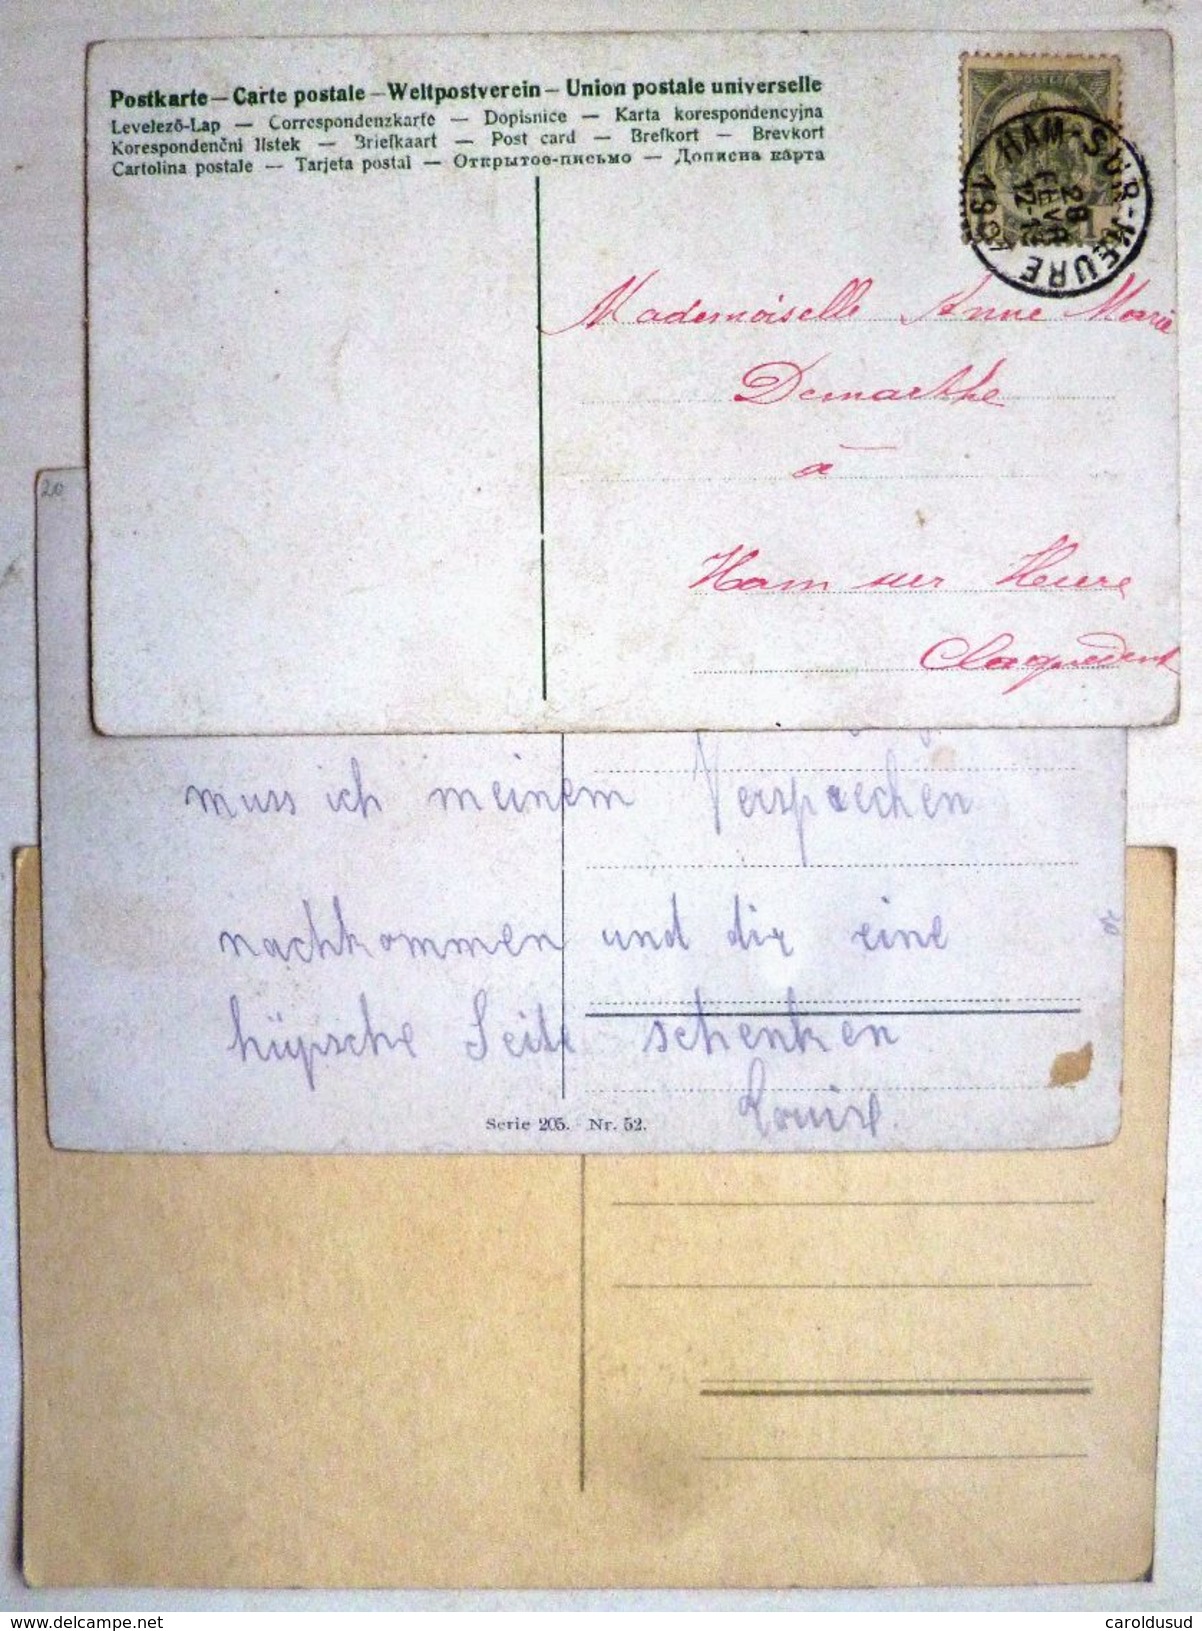 Postkarte — Carte postale — Weltpostverein — Union postale universelle
Levelező-Lap — Correspondenzkarte — Dopisnice — Karta korespondencyjna
Korespondenční lístek — Briefkaart — Post card — Brefkort — Brevkort
Cartolina postale — Tarjeta postal — Открытое-письмо — Дописна карта
HAM-SUR-HEURE
28
FEVR
1907
Mademoiselle Anne Marie
Demarthe
à
Ham sur Heure
20
muss ich meinem Versprechen
nachkommen und dir eine
hüpsche Seite schenken
Louise.
Serie 205. Nr. 52.
www.delcampe.net
caroldusud